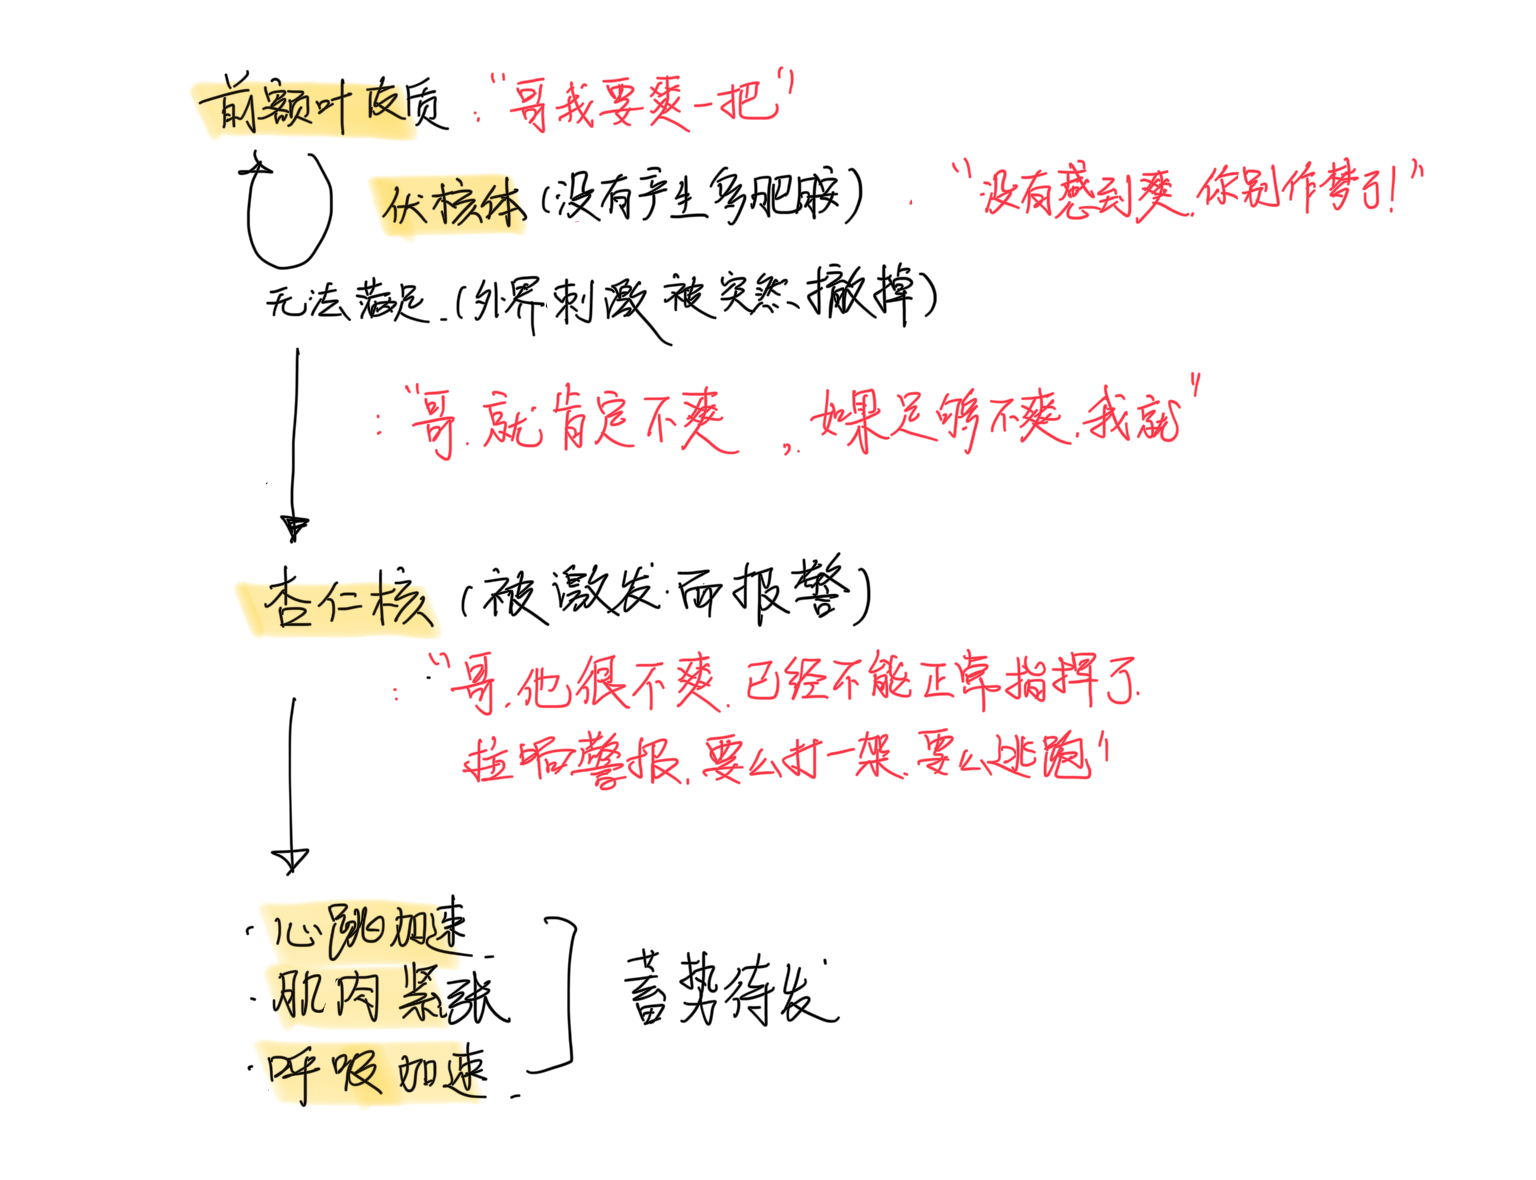 前额叶皮质：“哥我要爽一把”
伏核体（没有产生多肥胺）. “没有感到爽.你别作梦了!”
无法满足.（外界刺激被突然撤掉）
：“哥.就肯定不爽，如果足够不爽.我就”
杏仁核（被激发.而报警）
：“哥.他很不爽.已经不能正常指挥了.
拉响警报.要么打一架.要么逃跑”
·心跳加速.
·肌肉紧张
蓄势待发
·呼吸加速.